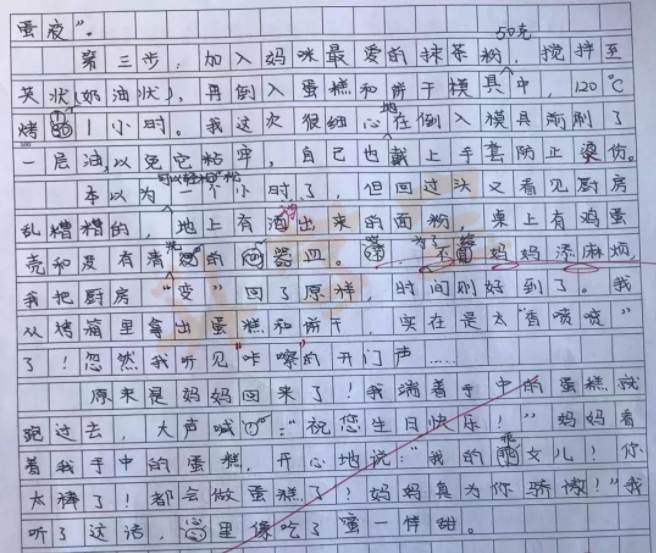 蛋液”。
第三步，加入妈咪最爱的抹茶粉50克，搅拌至
英状(奶油状)，再倒入蛋糕和饼干模具中，120℃
烤1小时。我这次很细心地在倒入模具前刷了
一层油，以免它粘牢，自己也戴上手套防止烫伤。
本以为可以轻松一个小时了，但回过头又看见厨房
乱糟糟的，地上有洒出来的面粉，桌上有鸡蛋
壳和没有清洗的器皿。为了不给妈妈添麻烦，
我把厨房“变”回了原样，时间刚好到了。我
从烤箱里拿出蛋糕和饼干，实在是太“香喷喷”
了！忽然我听见“咔嚓”的开门声……
原来是妈妈回来了！我端着手中的蛋糕就
跑过去，大声喊：“祝您生日快乐！”妈妈看
着我手中的蛋糕，开心地说：“我的乖女儿！你
太棒了！都会做蛋糕了！妈妈真为你骄傲！”我
听了这话，心里像吃了蜜一样甜。